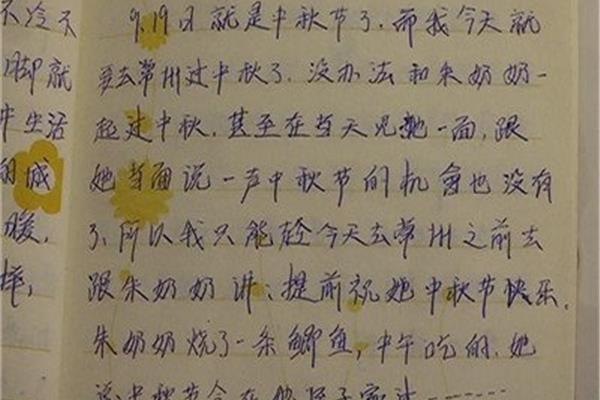 不冷不
脚就
中生活
的城
暖,
9.19日就是中秋节了.而我今天就
要去常州过中秋了.没办法和朱奶奶一
起过中秋.甚至在当天见她一面.跟
她当面说一声中秋节的机会也没有
了.所以我只能趁今天去常州之前去
跟朱奶奶讲:提前祝她中秋节快乐.
朱奶奶烧了一条鲫鱼,中午吃的.她
说中秋节会在她